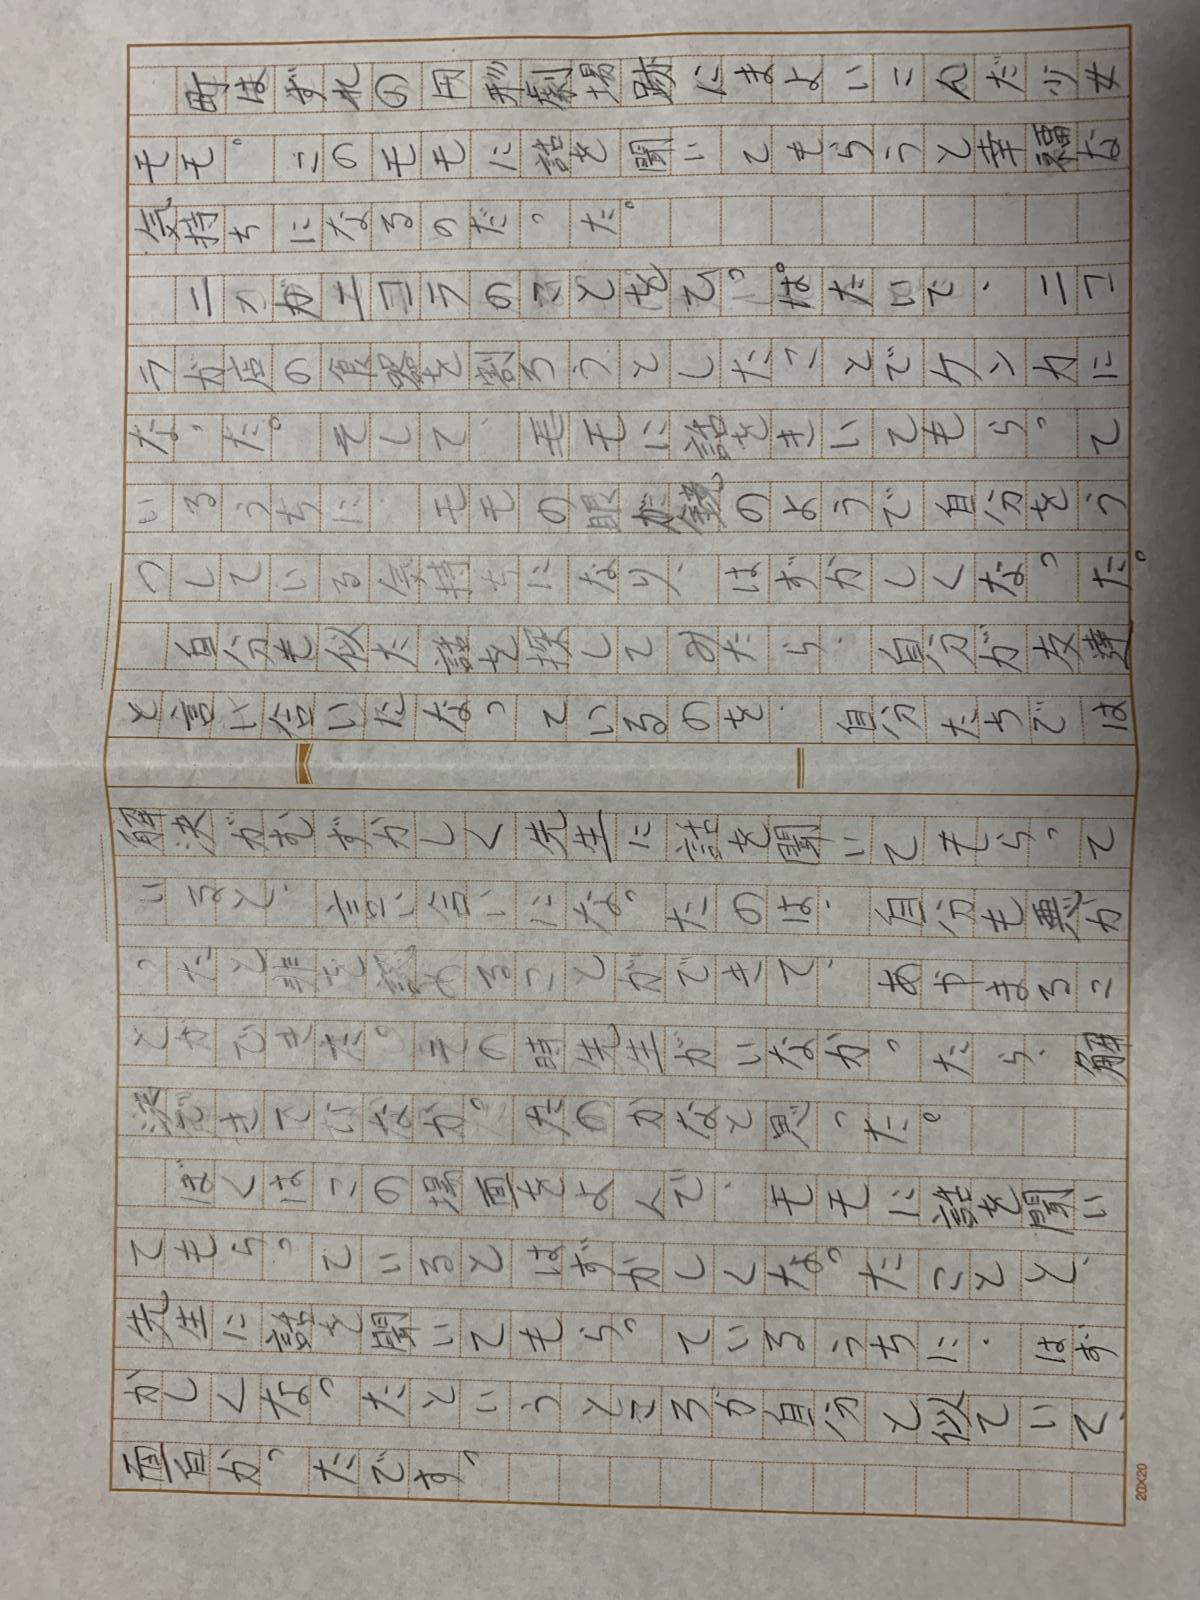 町はずれの円形劇場跡にまよいこんだ少女
モモ。このモモに話を聞いてもらうと幸福な
気持ちになるのだった。
ニノがニコラのことをひっぱたいで、ニコ
ラが店の食器を割ろうとしたことでケンカに
なった。そして、モモに話をきいてもらって
いるうちに、モモの眼が鏡のようで自分をう
つしている気持ちになり、はずかしくなった。
自分も似た話を探してみたら、自分が友達
と言い合いになっているのを、自分たちでは
解決がむずかしく先生に話を聞いてもらって
いると、言い合いになったのは、自分も悪か
ったと非を認めることができて、あやまるこ
とができた。その時先生がいなかったら、解
決できていなかったのかなと思った。
ぼくはこの場面をよんで、モモに話を聞い
てもらっているとはずかしくなったことと、
先生に話を聞いてもらっているうちに、はず
かしくなったというところが自分と似ていて、
面白かったです。
20×20